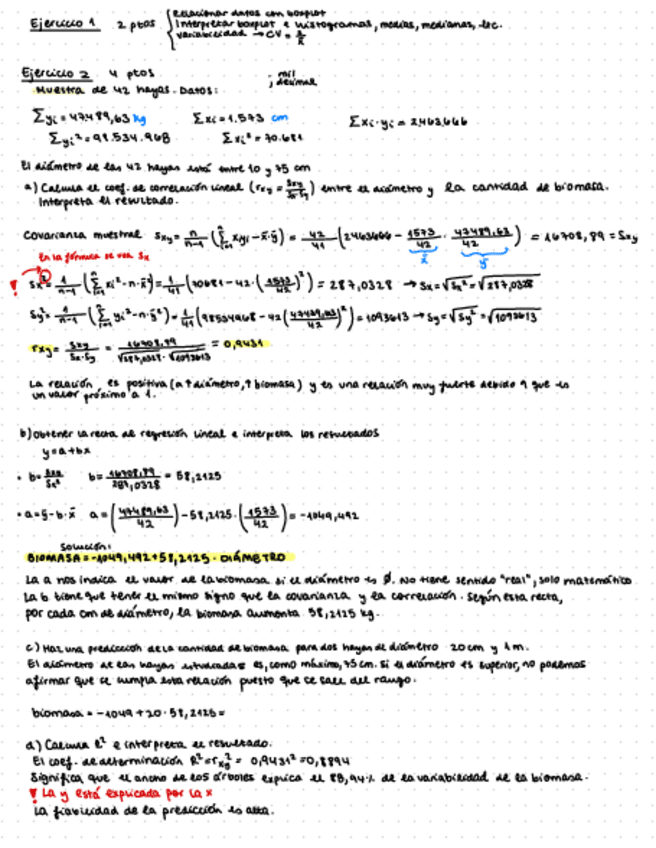 Ejercicio 1 2 ptos { Relacionar datos con boxplot
Interpretar boxplot e histogramas, medias, medianas, etc.
Variabilidad → CV = s/x̄
Ejercicio 2 4 ptos
. mil
, decimal
Muestra de 42 hayas. Datos:
Σyi = 47489,63 kg Σxi = 1.573 cm Σxi·yi = 2463666
Σyi² = 98.534.968 Σxi² = 70.681
El diámetro de las 42 hayas está entre 10 y 75 cm
a) Calcula el coef. de correlación lineal (rxy = Sxy/Sx·Sy) entre el diámetro y la cantidad de biomasa.
Interpreta el resultado.
Covarianza muestral Sxy = n/n-1 (Σxiyi - x̄·ȳ) = 42/41 (2463666 - 1573/42 · 47489,63/42) = 16708,89 = Sxy
x̄ ȳ
En la fórmula se usa Sx
! Sx² = 1/n-1 (Σxi² - n·x̄²) = 1/41 (70681 - 42·(1573/42)²) = 287,0328 → Sx = √Sx² = √287,0328
Sy² = 1/n-1 (Σyi² - n·ȳ²) = 1/41 (98534968 - 42(47489,63/42)²) = 1093613 → Sy = √Sy² = √1093613
rxy = Sxy/Sx·Sy = 16708,89/√287,0328·√1093613 = 0,9431
La relación es positiva (a ↑ diámetro, ↑ biomasa) y es una relación muy fuerte debido a que es
un valor próximo a 1.
b) Obtener la recta de regresión lineal e interpreta los resultados
y = a + bx
· b = Sxy/Sx² b = 16708,89/287,0328 = 58,2125
· a = ȳ - b·x̄ a = (47489,63/42) - 58,2125·(1573/42) = -1049,492
Solución:
BIOMASA = -1049,492 + 58,2125 · DIÁMETRO
La a nos indica el valor de la biomasa si el diámetro es Ø. No tiene sentido "real", solo matemático
La b tiene que tener el mismo signo que la covarianza y la correlación. Según esta recta,
por cada cm de diámetro, la biomasa aumenta 58,2125 kg.
c) Haz una predicción de la cantidad de biomasa para dos hayas de diámetro 20 cm y 1 m.
El diámetro de las hayas estudiadas es, como máximo, 75 cm. Si el diámetro es superior, no podemos
afirmar que se cumpla esta relación puesto que se sale del rango.
biomasa = -1049 + 20 · 58,2125 =
d) Calcula R² e interpreta el resultado.
El coef. de determinación R² = rxy² = 0,9431² = 0,8894
Significa que el ancho de los árboles explica el 88,94% de la variabilidad de la biomasa.
! La y está explicada por la x
La fiabilidad de la predicción es alta.